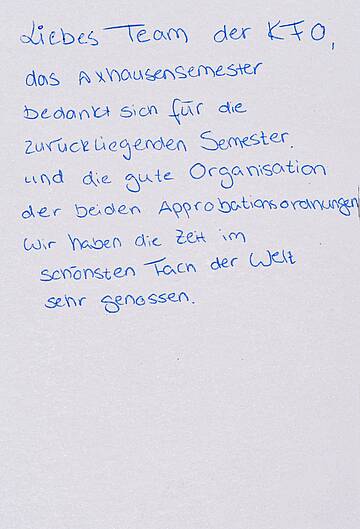 Liebes Team der KFO,
das Axhausensemester
bedankt sich für die
zurückliegenden Semester.
und die gute Organisation
der beiden Approbationsordnungen
Wir haben die Zeit im
schönsten Fach der Welt
sehr genossen.